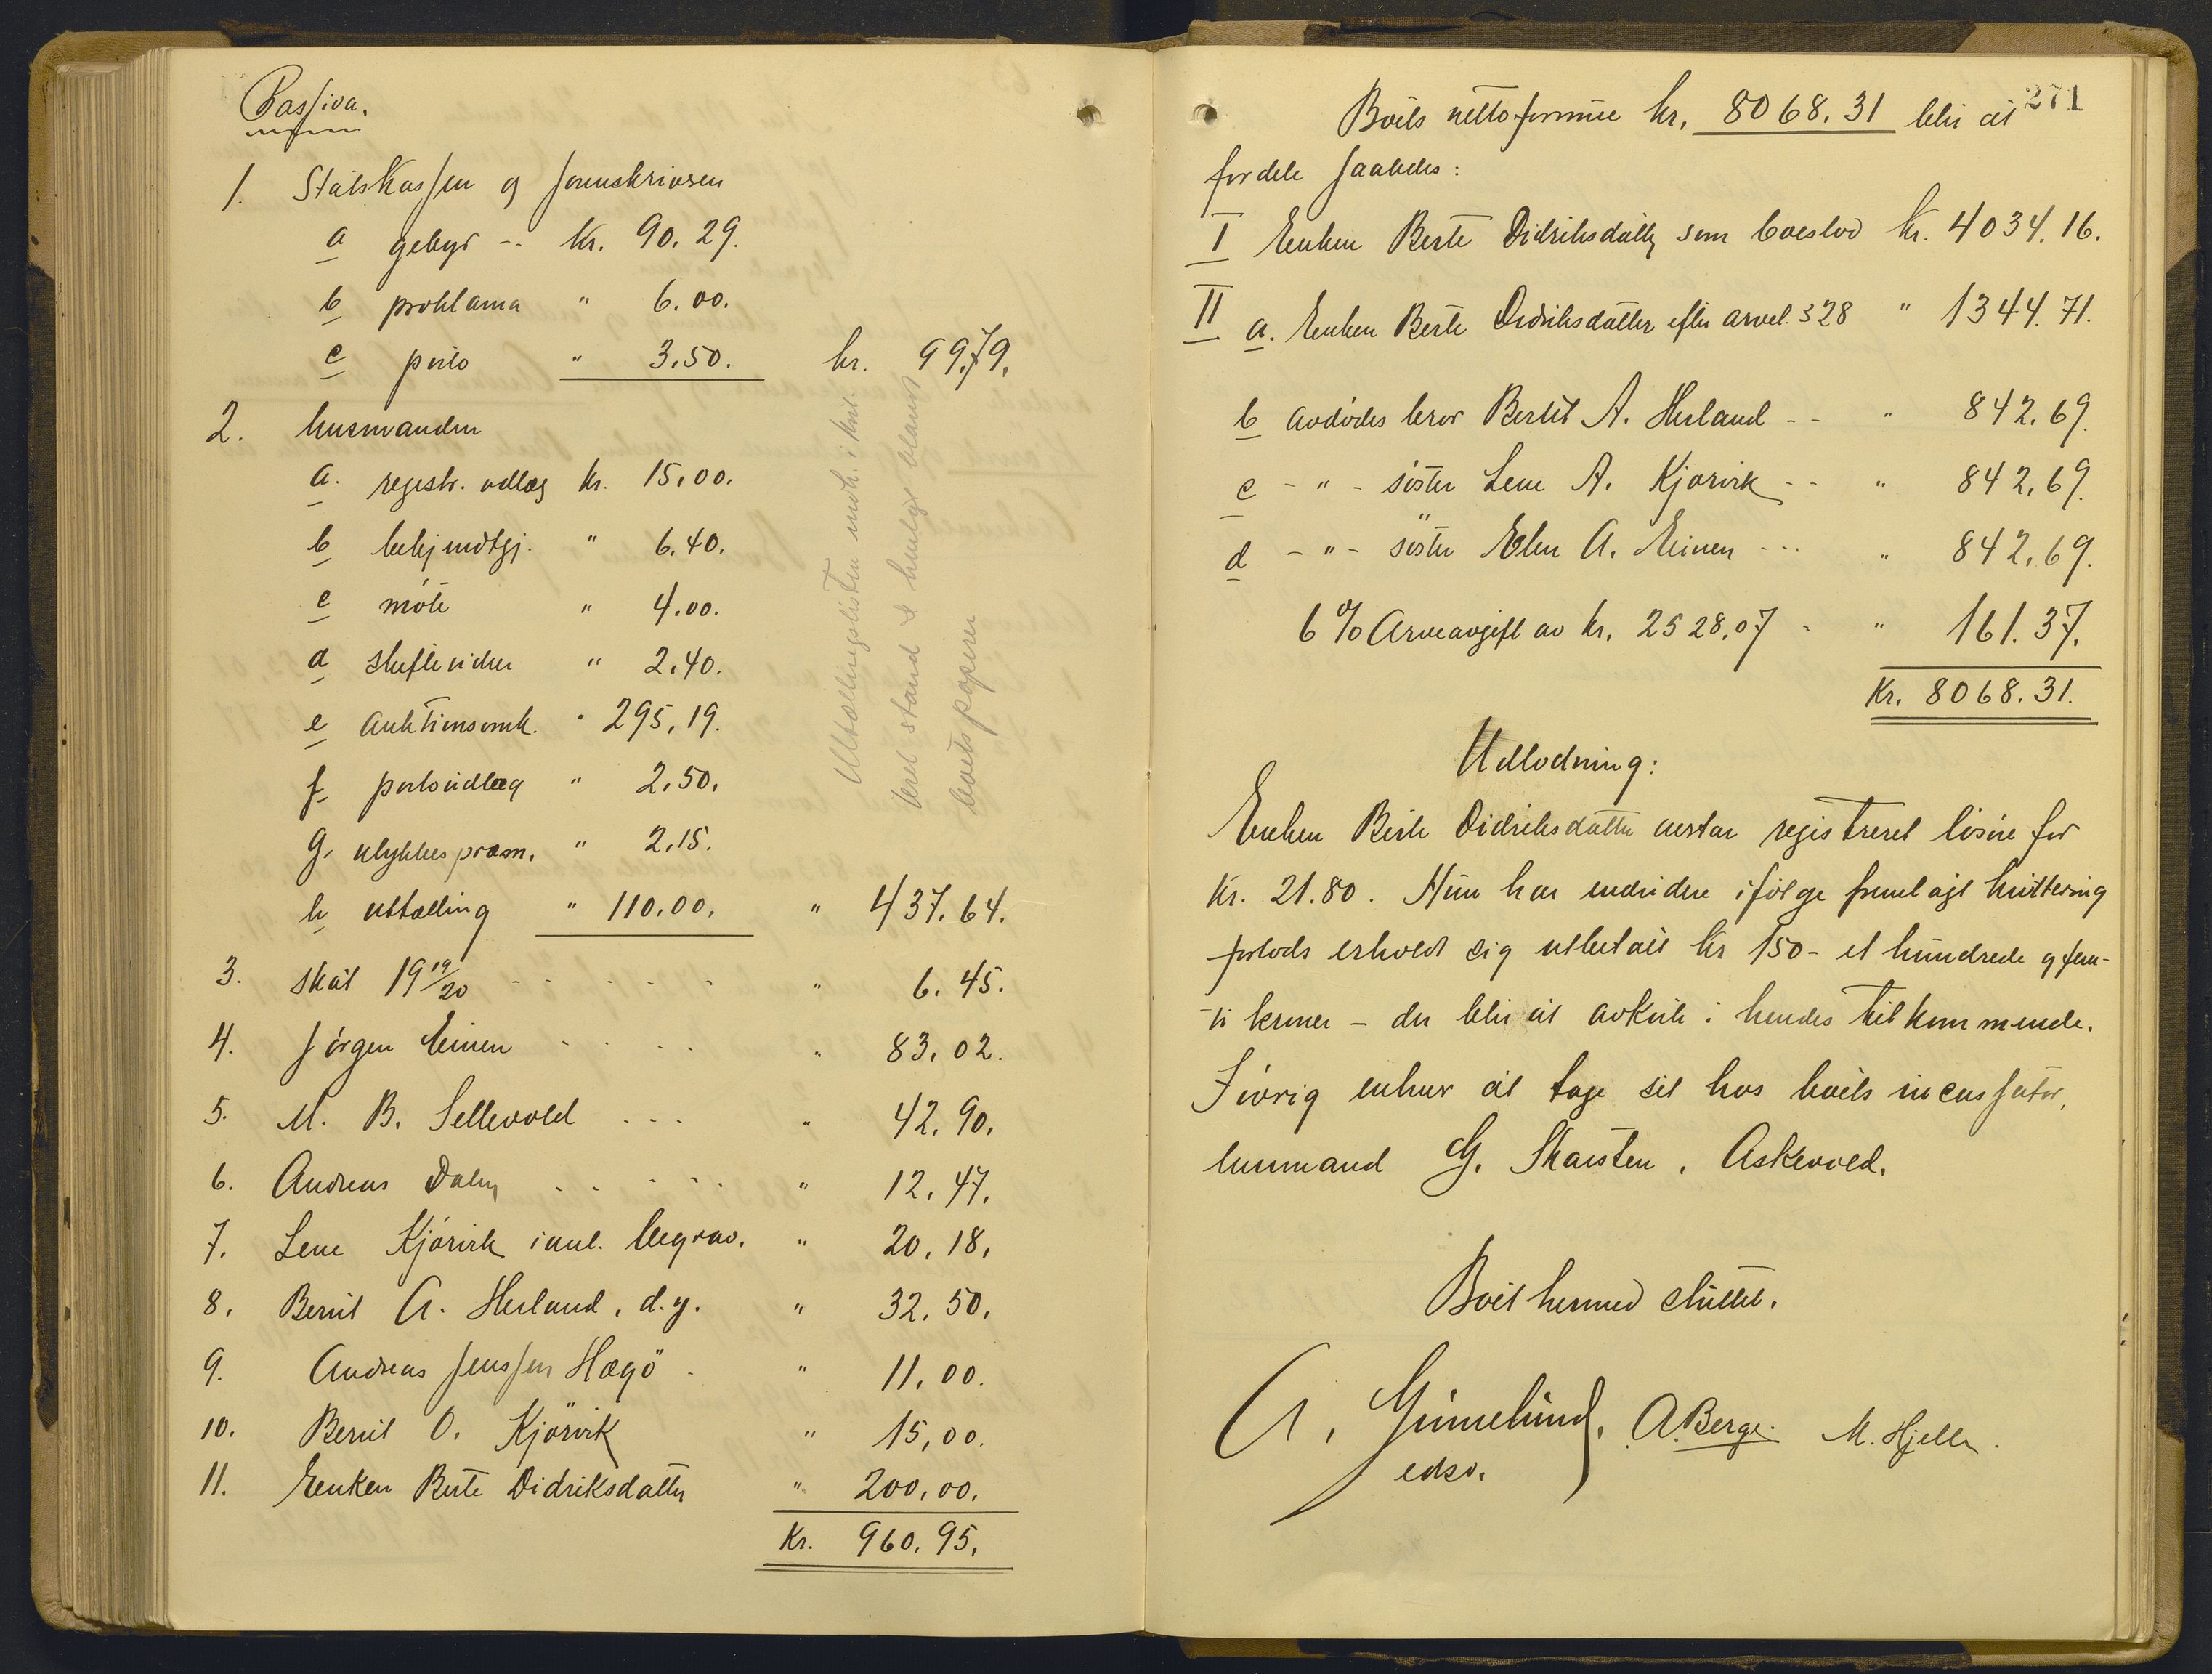 Passiva.
1. Statskassen og sorenskriveren
a gebyr -- kr. 90.29.
b proklama " 6.00.
c porto " 3.50. kr. 99.79.
2. lensmanden
a. registr. utlæg kr. 15.00.
b bekjendtgj. " 6.40.
c møte " 4.00.
d skiftevidner " 2.40.
e auktionsomk. " 295.19.
f portoudlæg " 2.50.
g. ulykkespræm. " 2.15.
h uttælling " 110.00. " 437.64.
3. skat 19 19/20 - - - - - " 6.45.
4. Jørgen Einen - - - - " 83.02.
5. M. B. Sellevold - - - " 42.90.
6. Andreas Dalen - - - - - " 12.47.
7. Lene Kjørvik i anl. begrav. " 20.18.
8. Bernt A. Herland, d.y. " 32.50.
9. Andreas Jenssen Hægø - " 11.00.
10. Bernt O. Kjørvik " 15,00.
11. Enken Berte Didriksdatter " 200,00.
Kr. 960.95.
Uttællingslisten indh. i knl.
bevis papirer
271
Boets nettoformue kr. 8068.31 blir at
fordele saaledes:
I Enken Berte Didriksdatter som boeslod kr. 4034.16.
II a. Enken Berte Didriksdatter efter arvel. § 28 " 1344.71.
b avdødes bror Bertil A. Herland -- " 842.69.
c - " - søster Lene A. Kjørvik -- " 842,69.
d - " - søster Elen A. Einen --- " 842,69.
6 % Arveavgift av kr. 2528,07 - " 161.37.
Kr. 8068.31.
Udlodning:
Enken Berte Didriksdatter overtar registreret løsøre for
kr. 21.80. Hun har endvidere ifølge fremlagt kvittering
forlods erholdt sig utbetalt kr 150 - et hundrede og fem-
ti kroner - der blir at avkorte i hendes tilkommende.
Iøvrig enhver at tage sit hos boets incassator,
lensmand G. Skarsten, Askevold.
Boet hermed sluttet.
A. Grimelund, A. Berge. M. Hjelle.
edsv.